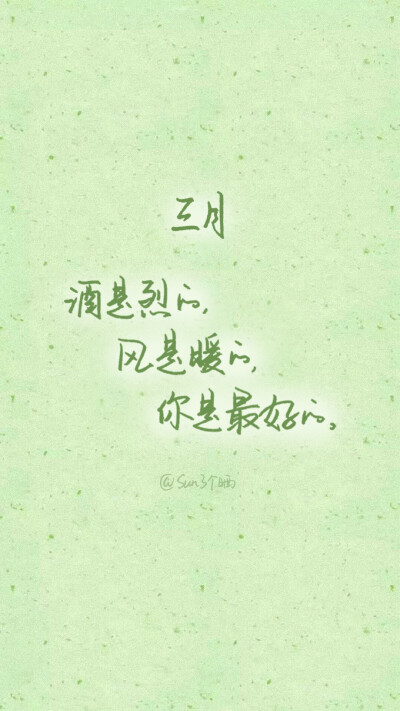 三月
酒是烈的，
风是暖的，
你是最好的。
@Sun3个晒